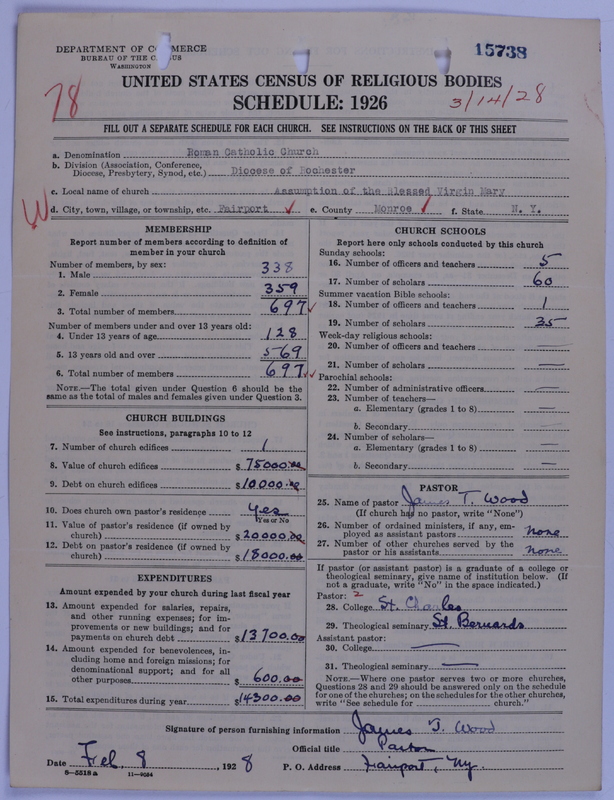 DEPARTMENT OF COMMERCE
BUREAU OF THE CENSUS
WASHINGTON
15738
UNITED STATES CENSUS OF RELIGIOUS BODIES
78
SCHEDULE: 1926
3/14/28
FILL OUT A SEPARATE SCHEDULE FOR EACH CHURCH. SEE INSTRUCTIONS ON THE BACK OF THIS SHEET
a. Denomination Roman Catholic Church
b. Division (Association, Conference,
Diocese, Presbytery, Synod, etc.) Diocese of Rochester
c. Local name of church Assumption of the Blessed Virgin Mary
W d. City, town, village, or township, etc. Fairport ✓ e. County Monroe ✓ f. State N. Y.
MEMBERSHIP
Report number of members according to definition of
member in your church
Number of members, by sex:
1. Male 338
2. Female 359
3. Total number of members 697 ✓
Number of members under and over 13 years old:
4. Under 13 years of age 128
5. 13 years old and over 569
6. Total number of members 697 ✓✓
NOTE.—The total given under Question 6 should be the
same as the total of males and females given under Question 3.
CHURCH BUILDINGS
See instructions, paragraphs 10 to 12
7. Number of church edifices 1
8. Value of church edifices $75000.00
9. Debt on church edifices $10,000.00
10. Does church own pastor's residence Yes
Yes or No
11. Value of pastor's residence (if owned by
church) $20000.00
12. Debt on pastor's residence (if owned by
church) $18000.00
EXPENDITURES
Amount expended by your church during last fiscal year
13. Amount expended for salaries, repairs,
and other running expenses; for im-
provements or new buildings; and for
payments on church debt $13700.00
14. Amount expended for benevolences, in-
cluding home and foreign missions; for
denominational support; and for all
other purposes $600.00
15. Total expenditures during year $14300.00
CHURCH SCHOOLS
Report here only schools conducted by this church
Sunday schools:
16. Number of officers and teachers 5
17. Number of scholars 60
Summer vacation Bible schools:
18. Number of officers and teachers 1
19. Number of scholars 35
Week-day religious schools:
20. Number of officers and teachers —
21. Number of scholars —
Parochial schools:
22. Number of administrative officers —
23. Number of teachers—
a. Elementary (grades 1 to 8) —
b. Secondary —
24. Number of scholars—
a. Elementary (grades 1 to 8) —
b. Secondary —
PASTOR
25. Name of pastor James T. Wood
(If church has no pastor, write "None")
26. Number of ordained ministers, if any, em-
ployed as assistant pastors none
27. Number of other churches served by the
pastor or his assistants none
If pastor (or assistant pastor) is a graduate of a college or
theological seminary, give name of institution below. (If
not a graduate, write "No" in the space indicated.)
Pastor: 2
28. College St. Charles
29. Theological seminary St Bernards
Assistant pastor:
30. College —
31. Theological seminary —
NOTE.—Where one pastor serves two or more churches,
Questions 28 and 29 should be answered only on the schedule
for one of the churches; on the schedules for the other churches,
write "See schedule for church."
Signature of person furnishing information James T. Wood
Official title Pastor
Date Feb. 8, 1928 P. O. Address Fairport, Ny.
8-5518a 11-9034